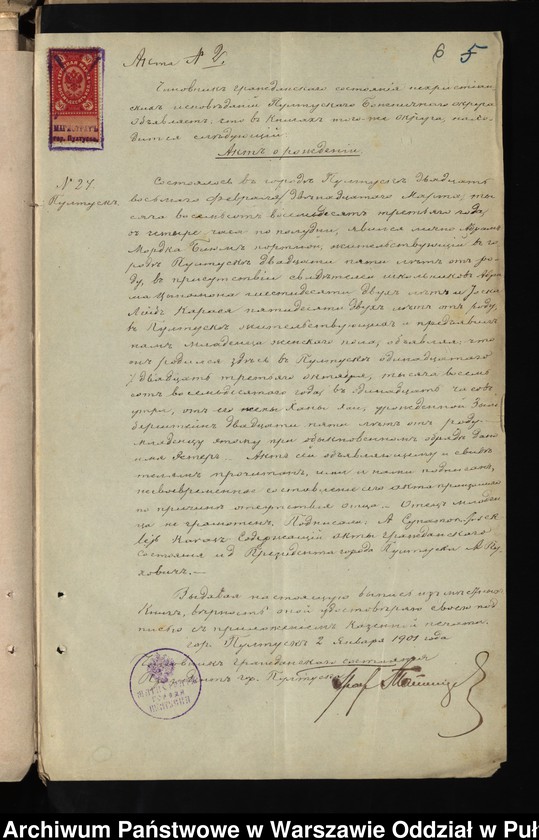 Акта № 2.
6 5
Чиновникъ гражданскаго состоянія нехристіан-
скихъ исповѣданій Пултускаго Божничнаго округа
объявляетъ, что въ книгахъ того-же округа, нахо-
дится слѣдующій
Актъ о рожденіи.
МАГИСТРАТЪ
гор. Пултуска
№ 27.
Пултускъ.
Состоялось въ городѣ Пултускѣ двадцать
восьмаго Февраля/Двѣнадцатаго Марта, ты-
сяча восемьсотъ восемьдесятъ третьяго года,
въ четыре часа по полудни, явился лично
Мордка портной, жительствующій въ го-
родѣ Пултускѣ двадцати пяти лѣтъ отъ ро-
ду, въ присутствіи свидѣтелей школьниковъ Абра-
ма шестидесяти двухъ лѣтъ и
Лейбъ пятидесяти двухъ лѣтъ отъ роду,
въ Пултускѣ жительствующихъ и предъявилъ
намъ младенца женскаго пола, объявляя, что
онъ родился здѣсь въ Пултускѣ одиннадцатаго
/двадцать третьяго октября, тысяча восемь-
сотъ восемьдесятаго года, въ одинадцать часовъ
утра, отъ его жены Ханы урожденной
двадцати пяти лѣтъ отъ роду.
Младенцу этому при обыкновенномъ обрядѣ дано
имя Эстеръ. Актъ сей объявляющему и свидѣ-
телямъ прочитанъ, ими и нами подписанъ,
несвоевременное составленіе сего акта произошло
по причинѣ отсутствія отца. Отецъ младен-
ца не грамотенъ. Подписали: А
Содержащій акты гражданскаго
состоянія и.д. Президента города Пултуска
Выдавая настоящую выпись изъ
книгъ, вѣрность оной удостовѣряю своею под-
писью съ приложеніемъ казенной печати.
гор. Пултускъ 2 Января 1901 года
Чиновникъ гражданскаго состоянія
Президентъ гор. Пултуска
Archiwum Państwowe w Warszawie Oddział w Puł